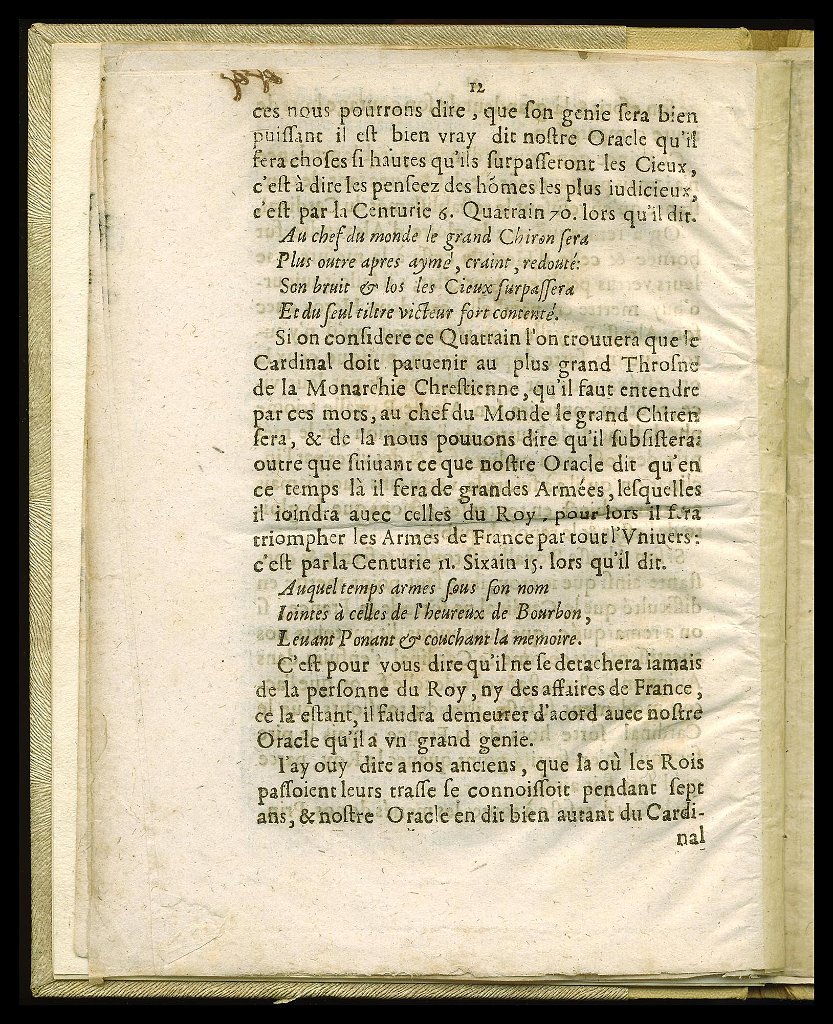 12
ces nous pourrons dire, que ſon genie ſera bien
puiſſant il eſt bien vray dit noſtre Oracle qu'il
fera choſes ſi hautes qu'ils ſurpaſſeront les Cieux,
c'eſt à dire les penſeez des hõmes les plus iudicieux,
c'eſt par la Centurie 6. Quatrain 70. lors qu'il dit.
Au chef du monde le grand Chiron ſera
Plus outre apres aymé, craint, redouté:
Son bruit & los les Cieux ſurpaſſera
Et du ſeul tiltre victeur fort contenté.
Si on conſidere ce Quatrain l'on trouuera que le
Cardinal doit paruenir au plus grand Throſne
de la Monarchie Chreſtienne, qu'il faut entendre
par ces mots, au chef du Monde le grand Chiren
ſera, & de la nous pouuons dire qu'il ſubſiſtera:
outre que ſuiuant ce que noſtre Oracle dit qu'en
ce temps là il fera de grandes Armées, leſquelles
il ioindra auec celles du Roy, pour lors il fera
triompher les Armes de France par tout l'Vniuers:
c'eſt par la Centurie 11. Sixain 15. lors qu'il dit.
Auquel temps armes ſous ſon nom
Iointes à celles de l'heureux de Bourbon,
Leuant Ponant & couchant la memoire.
C'eſt pour vous dire qu'il ne ſe detachera iamais
de la perſonne du Roy, ny des affaires de France,
ce la eſtant, il faudra demeurer d'acord auec noſtre
Oracle qu'il a vn grand genie.
I'ay ouy dire a nos anciens, que la où les Rois
paſſoient leurs traſſe ſe connoiſſoit pendant ſept
ans, & noſtre Oracle en dit bien autant du Cardi-
nal